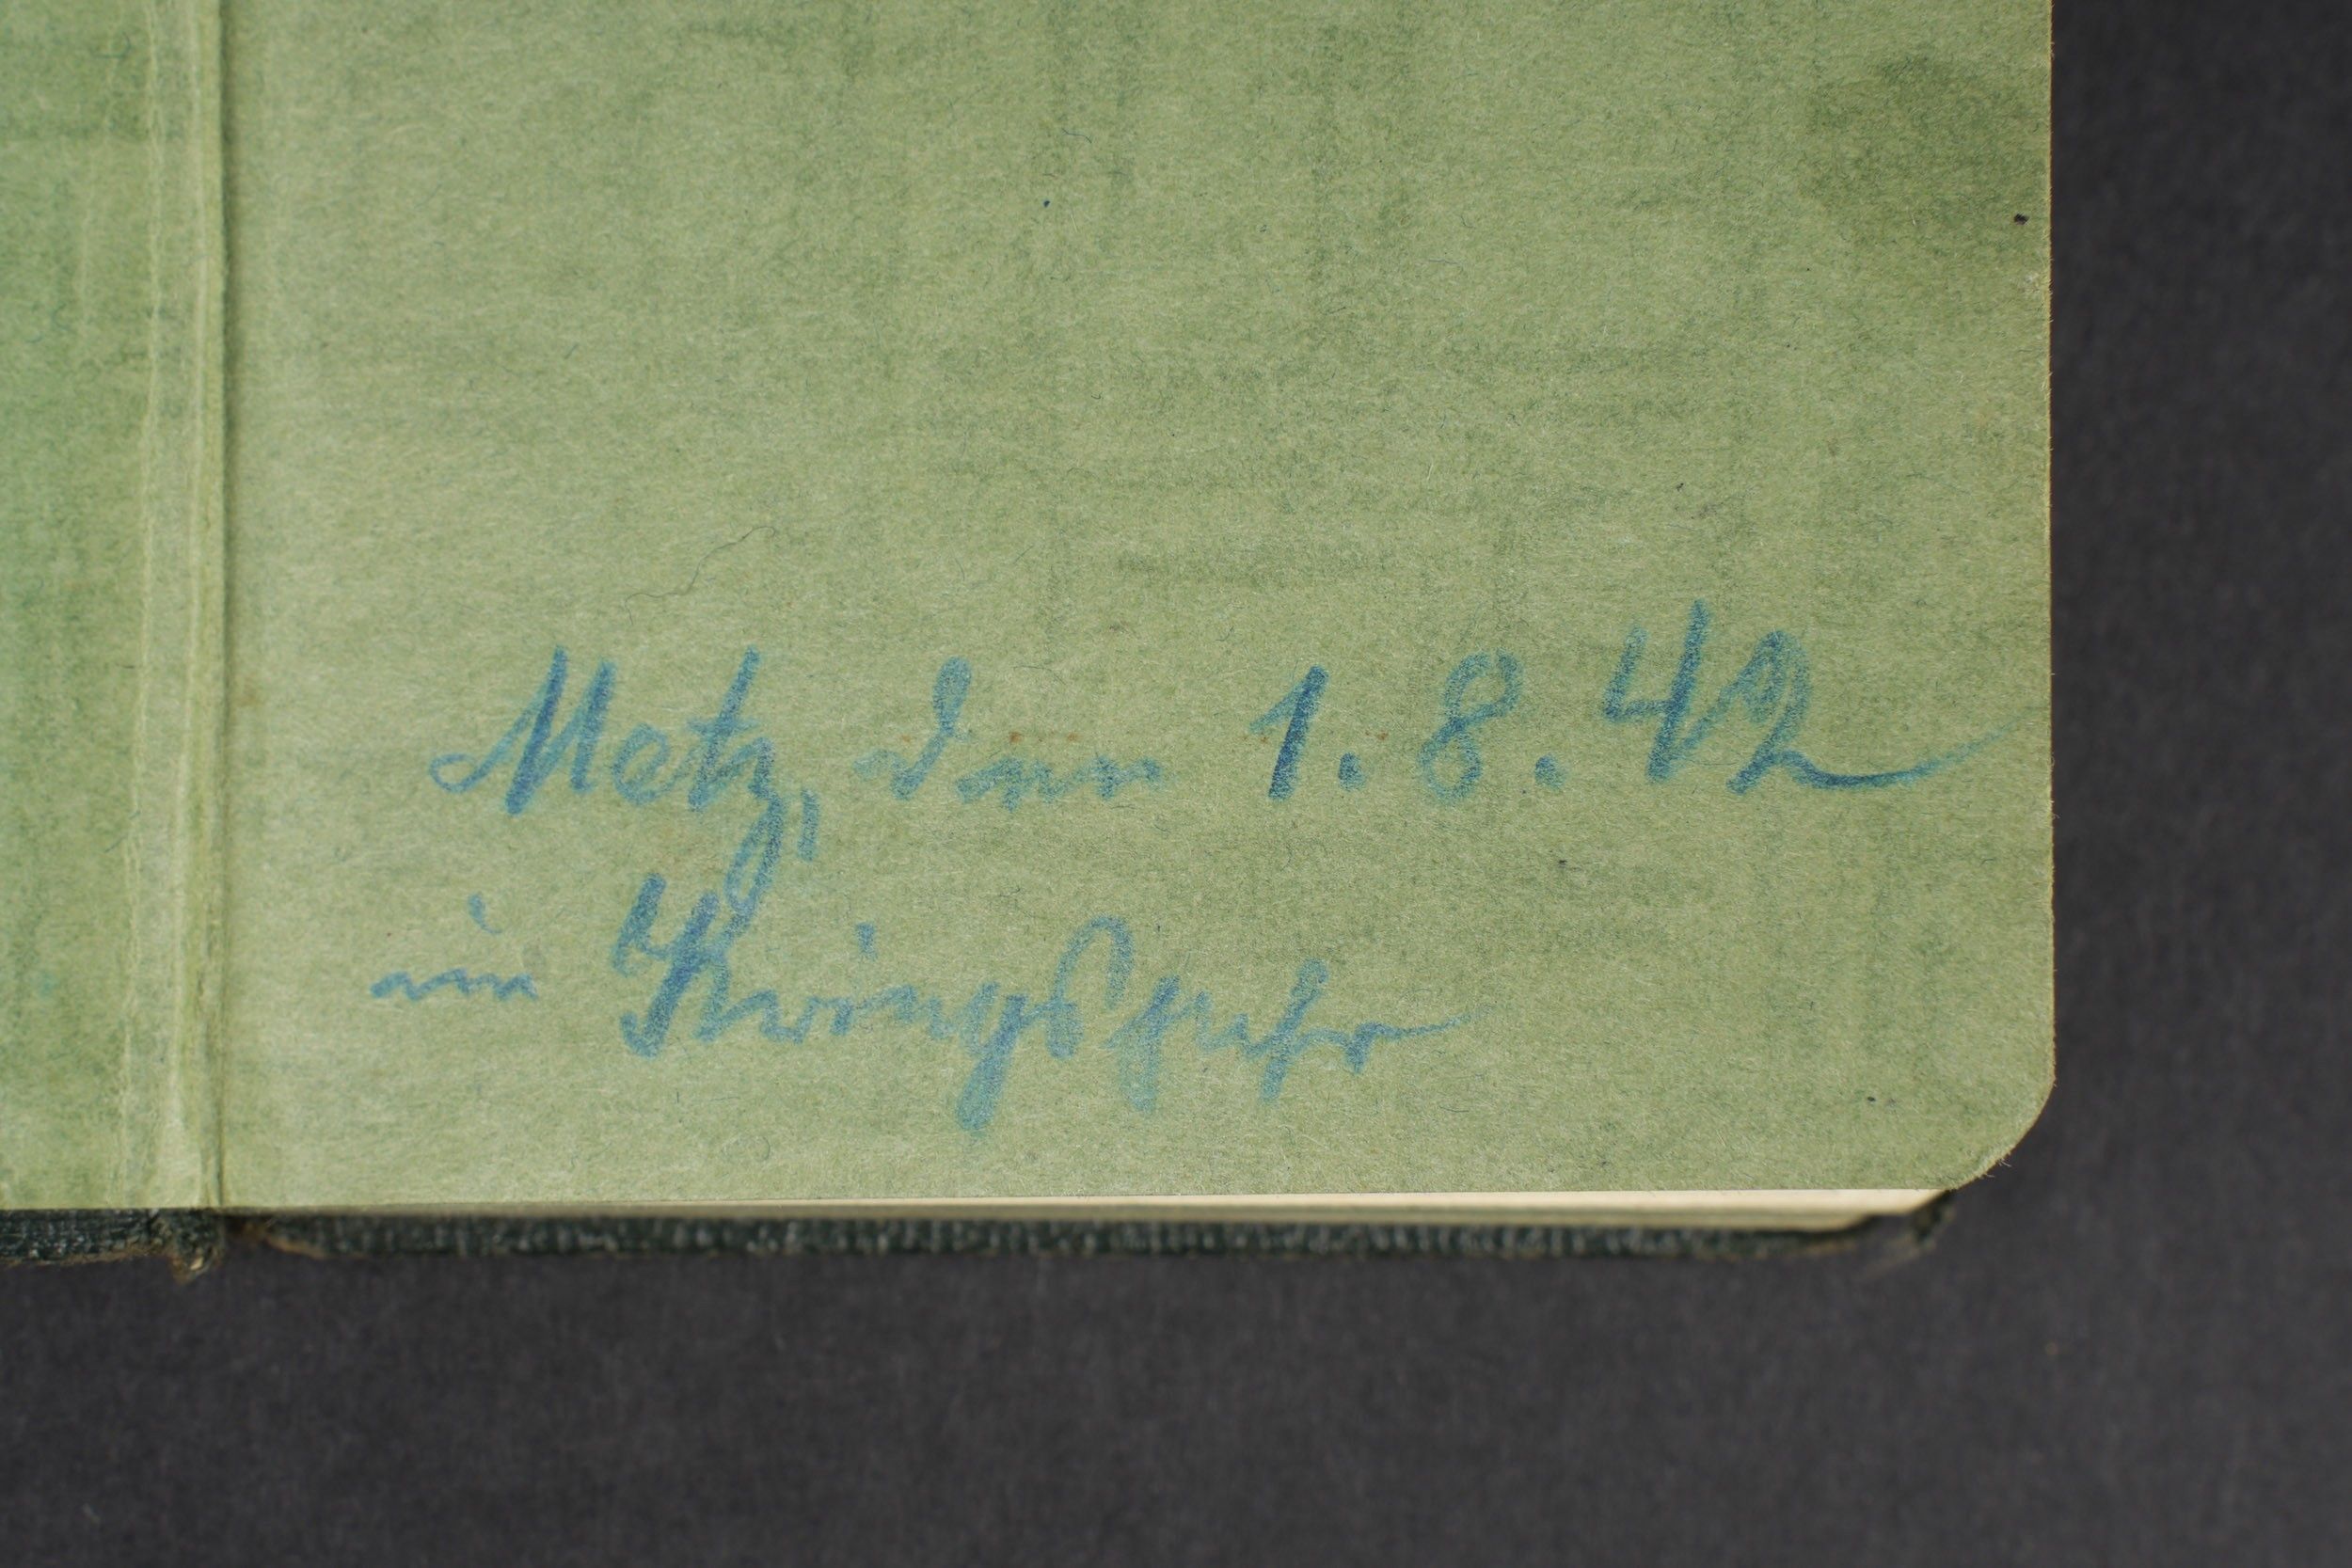 Metz, den 1.8.42
im Kriegsjahr